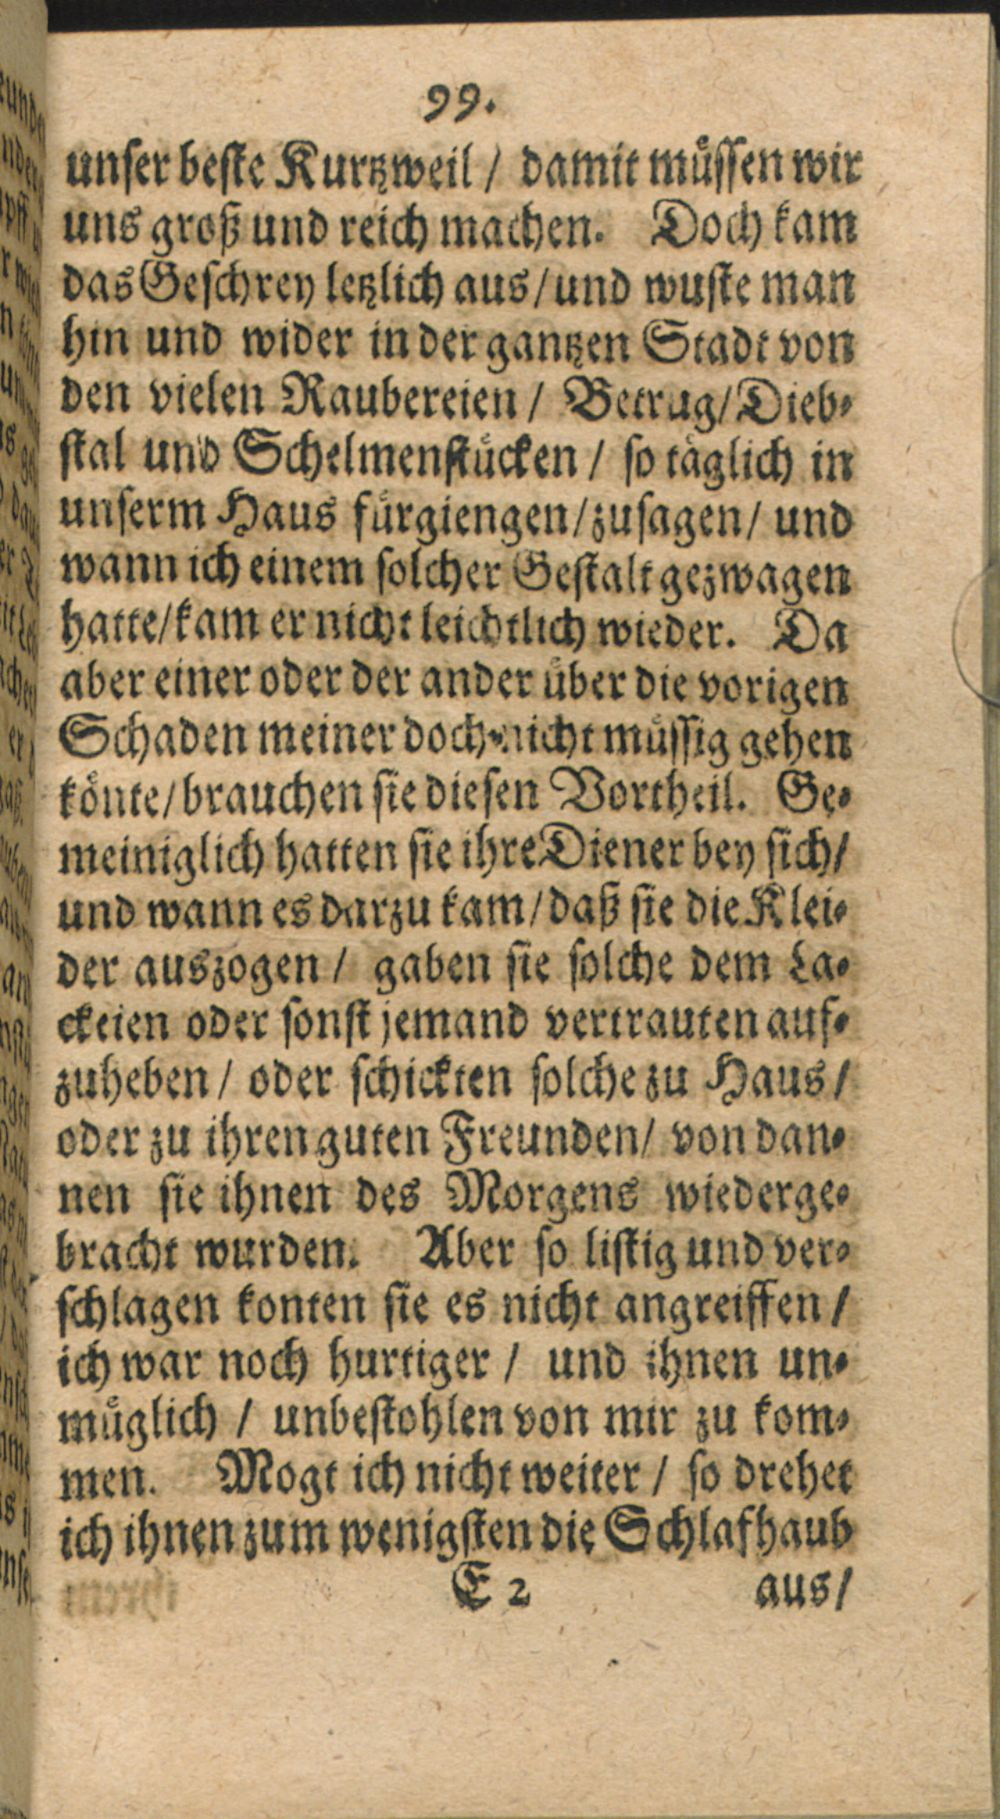 99.
unser beste Kurtzweil / damit müssen wir
uns groß und reich machen. Doch kam
das Geschrey letzlich aus / und wuste man
hin und wider in der gantzen Stadt von
den vielen Raubereien / Betrug / Dieb-
stal und Schelmenstücken / so täglich in
unserm Haus fürgiengen / zusagen / und
wann ich einem solcher Gestalt gezwagen
hatte / kam er nicht leichtlich wieder. Da
aber einer oder der ander über die vorigen
Schaden meiner doch nicht müssig gehen
könte / brauchen sie diesen Vortheil. Ge-
meiniglich hatten sie ihre Diener bey sich /
und wann es darzu kam / daß sie die Klei-
der auszogen / gaben sie solche dem La-
ckeien oder sonst jemand vertrauten auf-
zuheben / oder schickten solche zu Haus /
oder zu ihren guten Freunden / von dan-
nen sie ihnen des Morgens wiederge-
bracht wurden. Aber so listig und ver-
schlagen konten sie es nicht angreiffen /
ich war noch hurtiger / und ihnen un-
müglich / unbestohlen von mir zu kom-
men. Mogt ich nicht weiter / so drehet
ich ihnen zum wenigsten die Schlafhaub
E 2 aus /